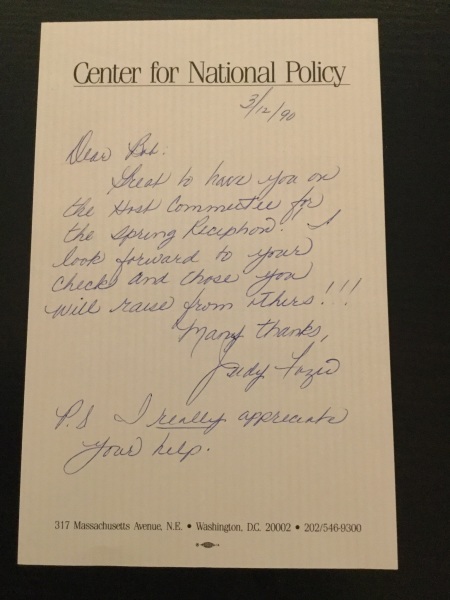 Center for National Policy
3/12/90
Dear Bob:
Great to have you on
the Host Committee for
the Spring Reception. I
look forward to your
check and those you
will raise from others!!!
Many thanks,
Judy
P.S I really appreciate
your help.
317 Massachusetts Avenue, N.E. • Washington, D.C. 20002 • 202/546-9300